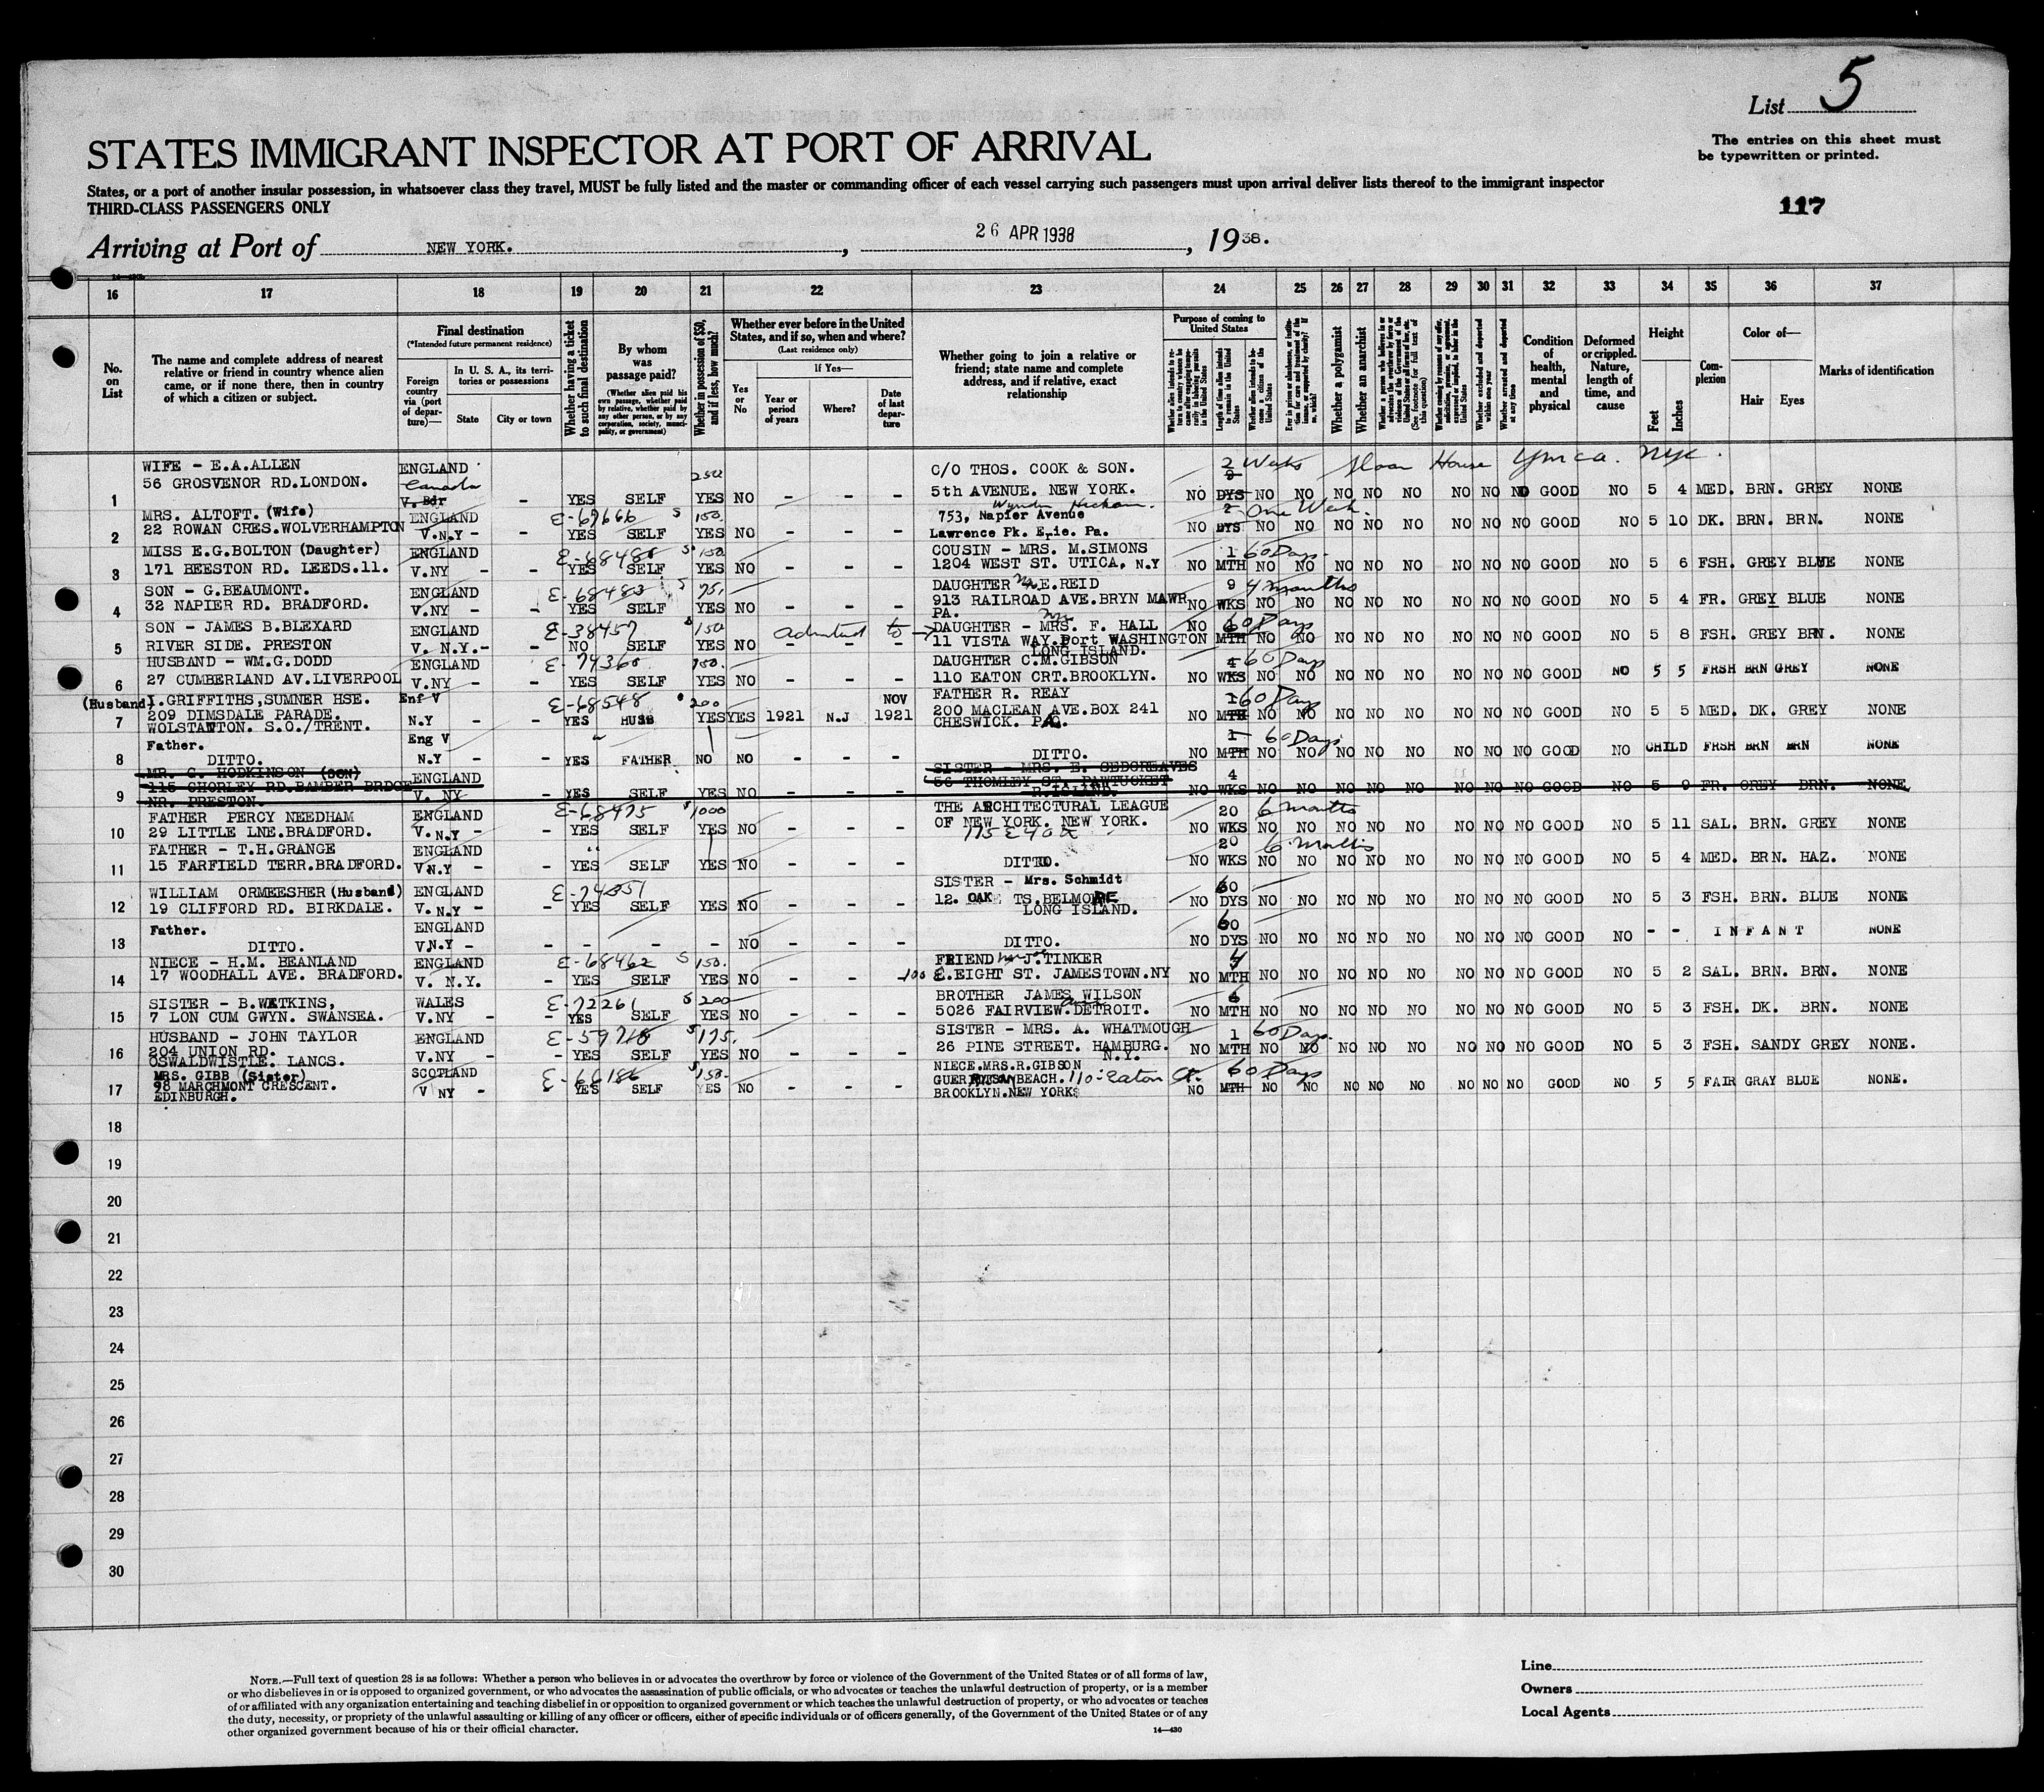 List 5
The entries on this sheet must
be typewritten or printed.
STATES IMMIGRANT INSPECTOR AT PORT OF ARRIVAL
States, or a port of another insular possession, in whatsoever class they travel, MUST be fully listed and the master or commanding officer of each vessel carrying such passengers must upon arrival deliver lists thereof to the immigrant inspector
THIRD-CLASS PASSENGERS ONLY
117
Arriving at Port of NEW YORK. , 26 APR 1938 , 1938.
16 17 18 19 20 21 22 23 24 25 26 27 28 29 30 31 32 33 34 35 36 37
No. on List
The name and complete address of nearest relative or friend in country whence alien came, or if none there, then in country of which a citizen or subject.
Final destination
(*Intended future permanent residence)
Foreign country via (port of departure)—
In U. S. A., its territories or possessions
State
City or town
Whether having a ticket to such final destination
By whom was passage paid?
(Whether alien paid his own passage, whether paid by relative, whether paid by any other person, or by any corporation, society, municipality, or government)
Whether in possession of $50, and if less, how much?
Whether ever before in the United States, and if so, when and where?
(Last residence only)
Yes or No
If Yes—
Year or period of years
Where?
Date of last departure
Whether going to join a relative or friend; state name and complete address, and if relative, exact relationship
Purpose of coming to United States
Length of time alien intends to remain in the United States
Whether alien intends to become a citizen of the United States
Whether a polygamist
Whether an anarchist
Whether excluded and deported within one year
Whether arrested and deported at any time
Condition of health, mental and physical
Deformed or crippled. Nature, length of time, and cause
Height
Feet
Inches
Complexion
Color of—
Hair
Eyes
Marks of identification
WIFE - E.A.ALLEN ENGLAND 250 C/O THOS. COOK & SON. 2 Weeks Sloan House Ymca. Nyc.
56 GROSVENOR RD.LONDON. Canada
1 V. Bdr - YES SELF YES NO - - - 5th AVENUE. NEW YORK. NO DYS NO NO NO NO NO NO NO NO GOOD NO 5 4 MED. BRN. GREY NONE
MRS. ALTOFT.(Wife) ENGLAND E-67666 $ 150. 753, Napier Avenue 2 One Week.
2 22 ROWAN CRES.WOLVERHAMPTON V.N.Y - - YES SELF YES NO - - - Lawrence Pk. Erie. Pa. NO DYS NO NO NO NO NO NO NO NO GOOD NO 5 10 DK. BRN. BRN. NONE
MISS E.G.BOLTON (Daughter) ENGLAND $ 150 COUSIN - MRS. M.SIMONS 1 60 Days.
3 171 BEESTON RD. LEEDS.11. V.NY - - YES SELF YES NO - - - 1204 WEST ST. UTICA, N.Y NO MTH NO NO NO NO NO NO NO NO GOOD NO 5 6 FSH. GREY BLUE NONE
SON - G.BEAUMONT. ENGLAND E-68483 $ 75. DAUGHTER E.REID 9 4 months
4 32 NAPIER RD. BRADFORD. V.NY - - YES SELF YES NO - - - 913 RAILROAD AVE.BRYN MAWR PA. NO WKS NO NO NO NO NO NO NO NO GOOD NO 5 4 FR. GREY BLUE NONE
SON - JAMES B.BLEXARD ENGLAND E-38457 $ 150 admitted to → DAUGHTER - MRS. F. HALL NO 60 Days
5 RIVER SIDE. PRESTON V. N.Y.- - NO SELF YES NO - - - 11 VISTA WAY.Port WASHINGTON LONG ISLAND. MTH NO NO NO NO NO NO NO NO GOOD NO 5 8 FSH. GREY BRN. NONE
HUSBAND - WM.G.DODD ENGLAND E-74360 150. DAUGHTER C.M.GIBSON 60 Days
6 27 CUMBERLAND AV.LIVERPOOL V.NY - - YES SELF YES NO - - - 110 EATON CRT.BROOKLYN. NO WKS NO NO NO NO NO NO NO NO GOOD NO 5 5 FRSH BRN GREY NONE
(Husband) I.GRIFFITHS,SUMNER HSE. Enf V E-68548 200 NOV FATHER R. REAY 1 60 Days
7 209 DIMSDALE PARADE. WOLSTANTON. S.O./TRENT. N.Y - - YES HUSB YES YES 1921 N.J 1921 200 MACLEAN AVE.BOX 241 CHESWICK. PA. NO MTH NO NO NO NO NO NO NO NO GOOD NO 5 5 MED. DK. GREY NONE
Father. Eng V " 1 60 Days
8 DITTO. N.Y - - YES FATHER NO NO - - - DITTO. NO MTH NO NO NO NO NO NO NO NO GOOD NO CHILD FRSH BRN BRN NONE
MR. C. HODKINSON (SON) ENGLAND SISTER - MRS. E. SEDGREAVES 4
9 115 CHORLEY RD.BAMBER BRDGE NR. PRESTON. V. NY - YES SELF YES NO - - - 56 THOMLEY ST. PAWTUCKET R.ISLAND. NO WKS NO NO NO NO NO NO NO NO GOOD NO 5 9 FR. GREY BRN. NONE
FATHER PERCY NEEDHAM ENGLAND E-68475 $ 1000 THE ARCHITECTURAL LEAGUE 20 6 months
10 29 LITTLE LNE.BRADFORD. V.N.Y - - YES SELF YES NO - - - OF NEW YORK. NEW YORK. 115 E 40 St NO WKS NO NO NO NO NO NO NO NO GOOD NO 5 11 SAL. BRN. GREY NONE
FATHER - T.H.GRANGE ENGLAND " 20 6 months
11 15 FARFIELD TERR.BRADFORD. V.N.Y - - YES SELF YES NO - - - DITTO. NO WKS NO NO NO NO NO NO NO NO GOOD NO 5 4 MED. BRN. HAZ. NONE
WILLIAM ORMEESHER (Husband) ENGLAND E-74351 SISTER - Mrs. Schmidt 60
12 19 CLIFFORD RD. BIRKDALE. V.N.Y - - YES SELF YES NO - - - 12. OAK TS.BELMORE LONG ISLAND. NO DYS NO NO NO NO NO NO NO NO GOOD NO 5 3 FSH. BRN. BLUE NONE
Father. ENGLAND 60
13 DITTO. V.N.Y - - - - - NO - - - DITTO. NO DYS NO NO NO NO NO NO NO NO GOOD NO - - INFANT NONE
NIECE - H.M. BEANLAND ENGLAND E-68462 $ 150. FRIEND J.TINKER 4
14 17 WOODHALL AVE. BRADFORD. V. N.Y. - YES SELF YES NO - - - 100 E.EIGHT ST. JAMESTOWN.NY NO MTH NO NO NO NO NO NO NO NO GOOD NO 5 2 SAL. BRN. BRN. NONE
SISTER - B.WATKINS, WALES E-72261 $ 200 BROTHER JAMES WILSON 6
15 7 LON CUM GWYN. SWANSEA. V.NY - - YES SELF YES NO - - - 5026 FAIRVIEW.DETROIT. NO MTH NO NO NO NO NO NO NO NO GOOD NO 5 3 FSH. DK. BRN. NONE
HUSBAND - JOHN TAYLOR ENGLAND $ 175. SISTER - MRS. A. WHATMOUGH 1 60 Days.
16 204 UNION RD. OSWALDWISTLE. LANCS. V.NY - - YES SELF YES NO - - - 26 PINE STREET. HAMBURG. N.Y. NO MTH NO NO NO NO NO NO NO NO GOOD NO 5 3 FSH. SANDY GREY NONE.
MRS. GIBB (Sister) SCOTLAND E-66186 $ 150. NIECE.MRS.R.GIBSON 60 Days
17 98 MARCHMONT CRESCENT. EDINBURGH. V NY - YES SELF YES NO - - - BEACH. 110-Eaton Ct. BROOKLYN.NEW YORK NO MTH NO NO NO NO NO NO NO NO GOOD NO 5 5 FAIR GRAY BLUE NONE.
18
19
20
21
22
23
24
25
26
27
28
29
30
NOTE.—Full text of question 28 is as follows: Whether a person who believes in or advocates the overthrow by force or violence of the Government of the United States or of all forms of law,
or who disbelieves in or is opposed to organized government, or who advocates the assassination of public officials, or who advocates or teaches the unlawful destruction of property, or is a member
of or affiliated with any organization entertaining and teaching disbelief in or opposition to organized government or which teaches the unlawful destruction of property, or who advocates or teaches
the duty, necessity, or propriety of the unlawful assaulting or killing of any officer or officers, either of specific individuals or of officers generally, of the Government of the United States or of any
other organized government because of his or their official character.
14—430
Line
Owners
Local Agents